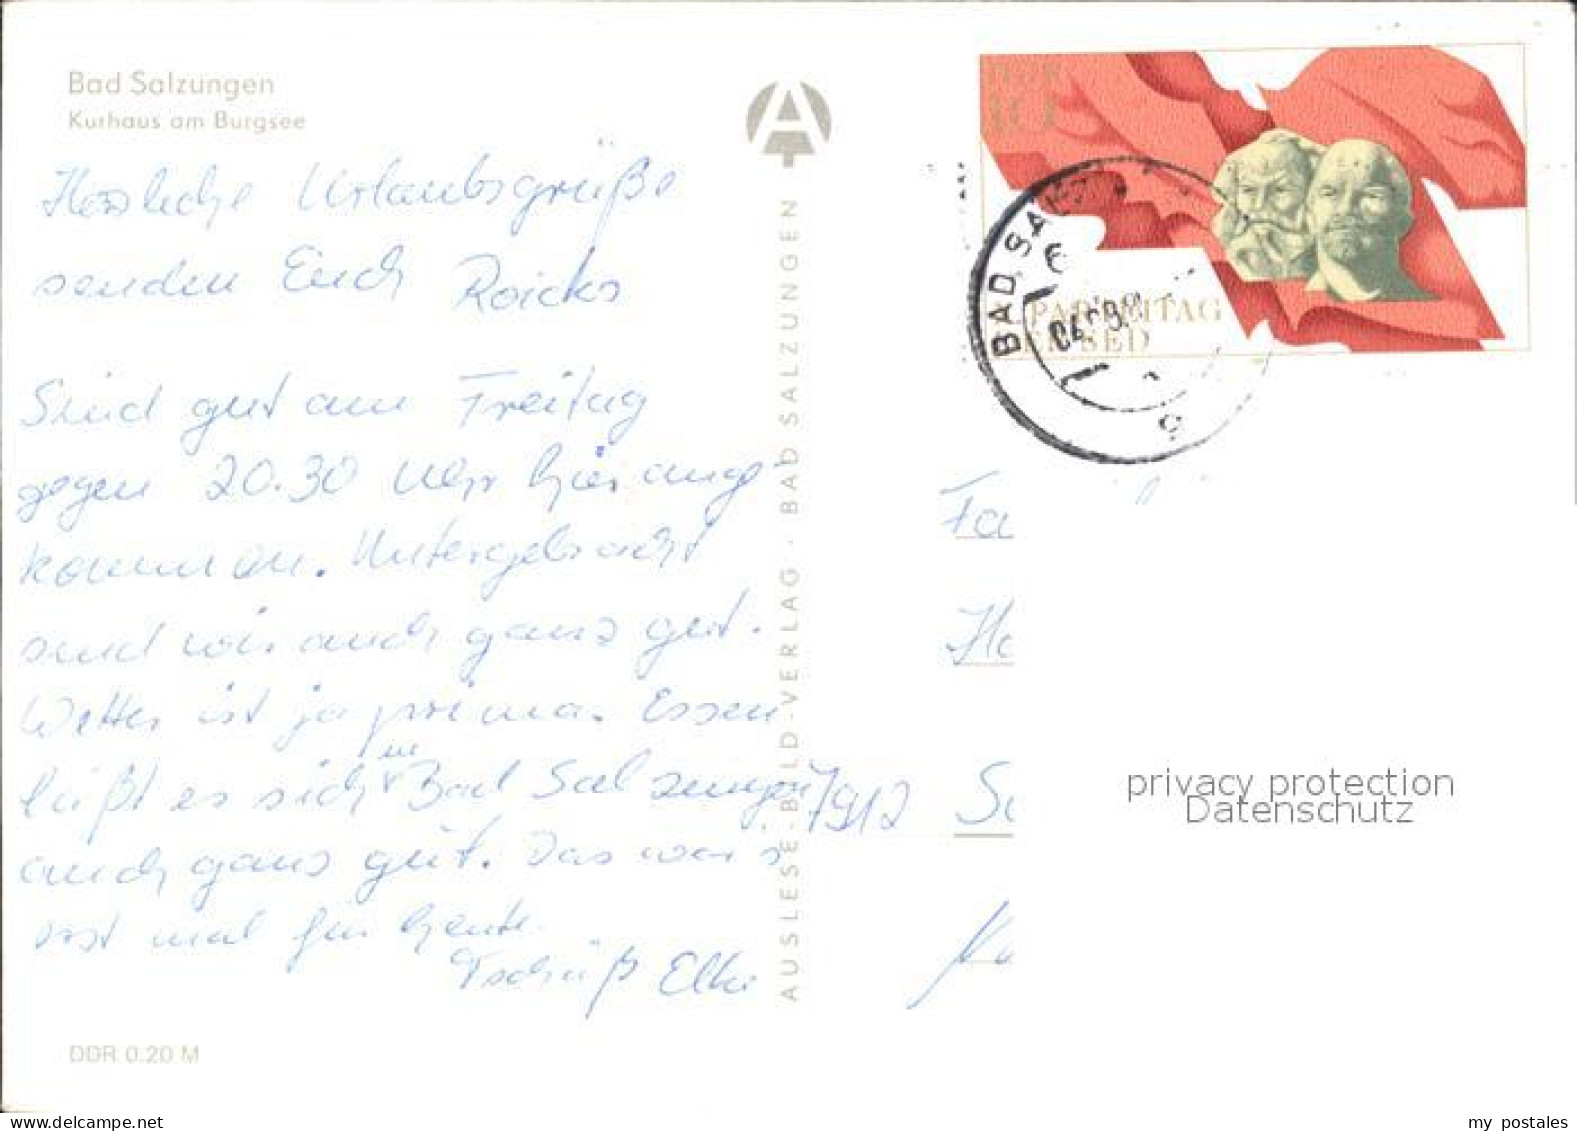 Bad Salzungen
Kurhaus am Burgsee
Herzliche Urlaubsgrüße
senden Euch Roicks
Sind gut am Freitag
gegen 20.30 Uhr hier ange
kommen. Untergebracht
sind wir auch ganz gut.
Wetter ist ja prima. Essen
läßt es sich in Bad Salzungen
auch ganz gut. Das wär's
erst mal für heute.
Tschüß Elke
DDR 0.20 M
AUSLESE-BILD-VERLAG · BAD SALZUNGEN · BAD SALZUNGEN
A
DDR
10
PARTEITAG
DER SED
BAD SALZ
Fa
Ha
7912 Sc
privacy protection
Datenschutz
my postales